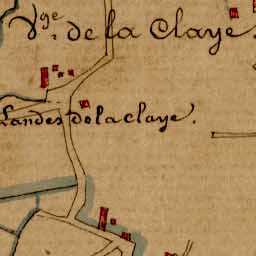 Vge. de la Claye.
Landes de la claye.